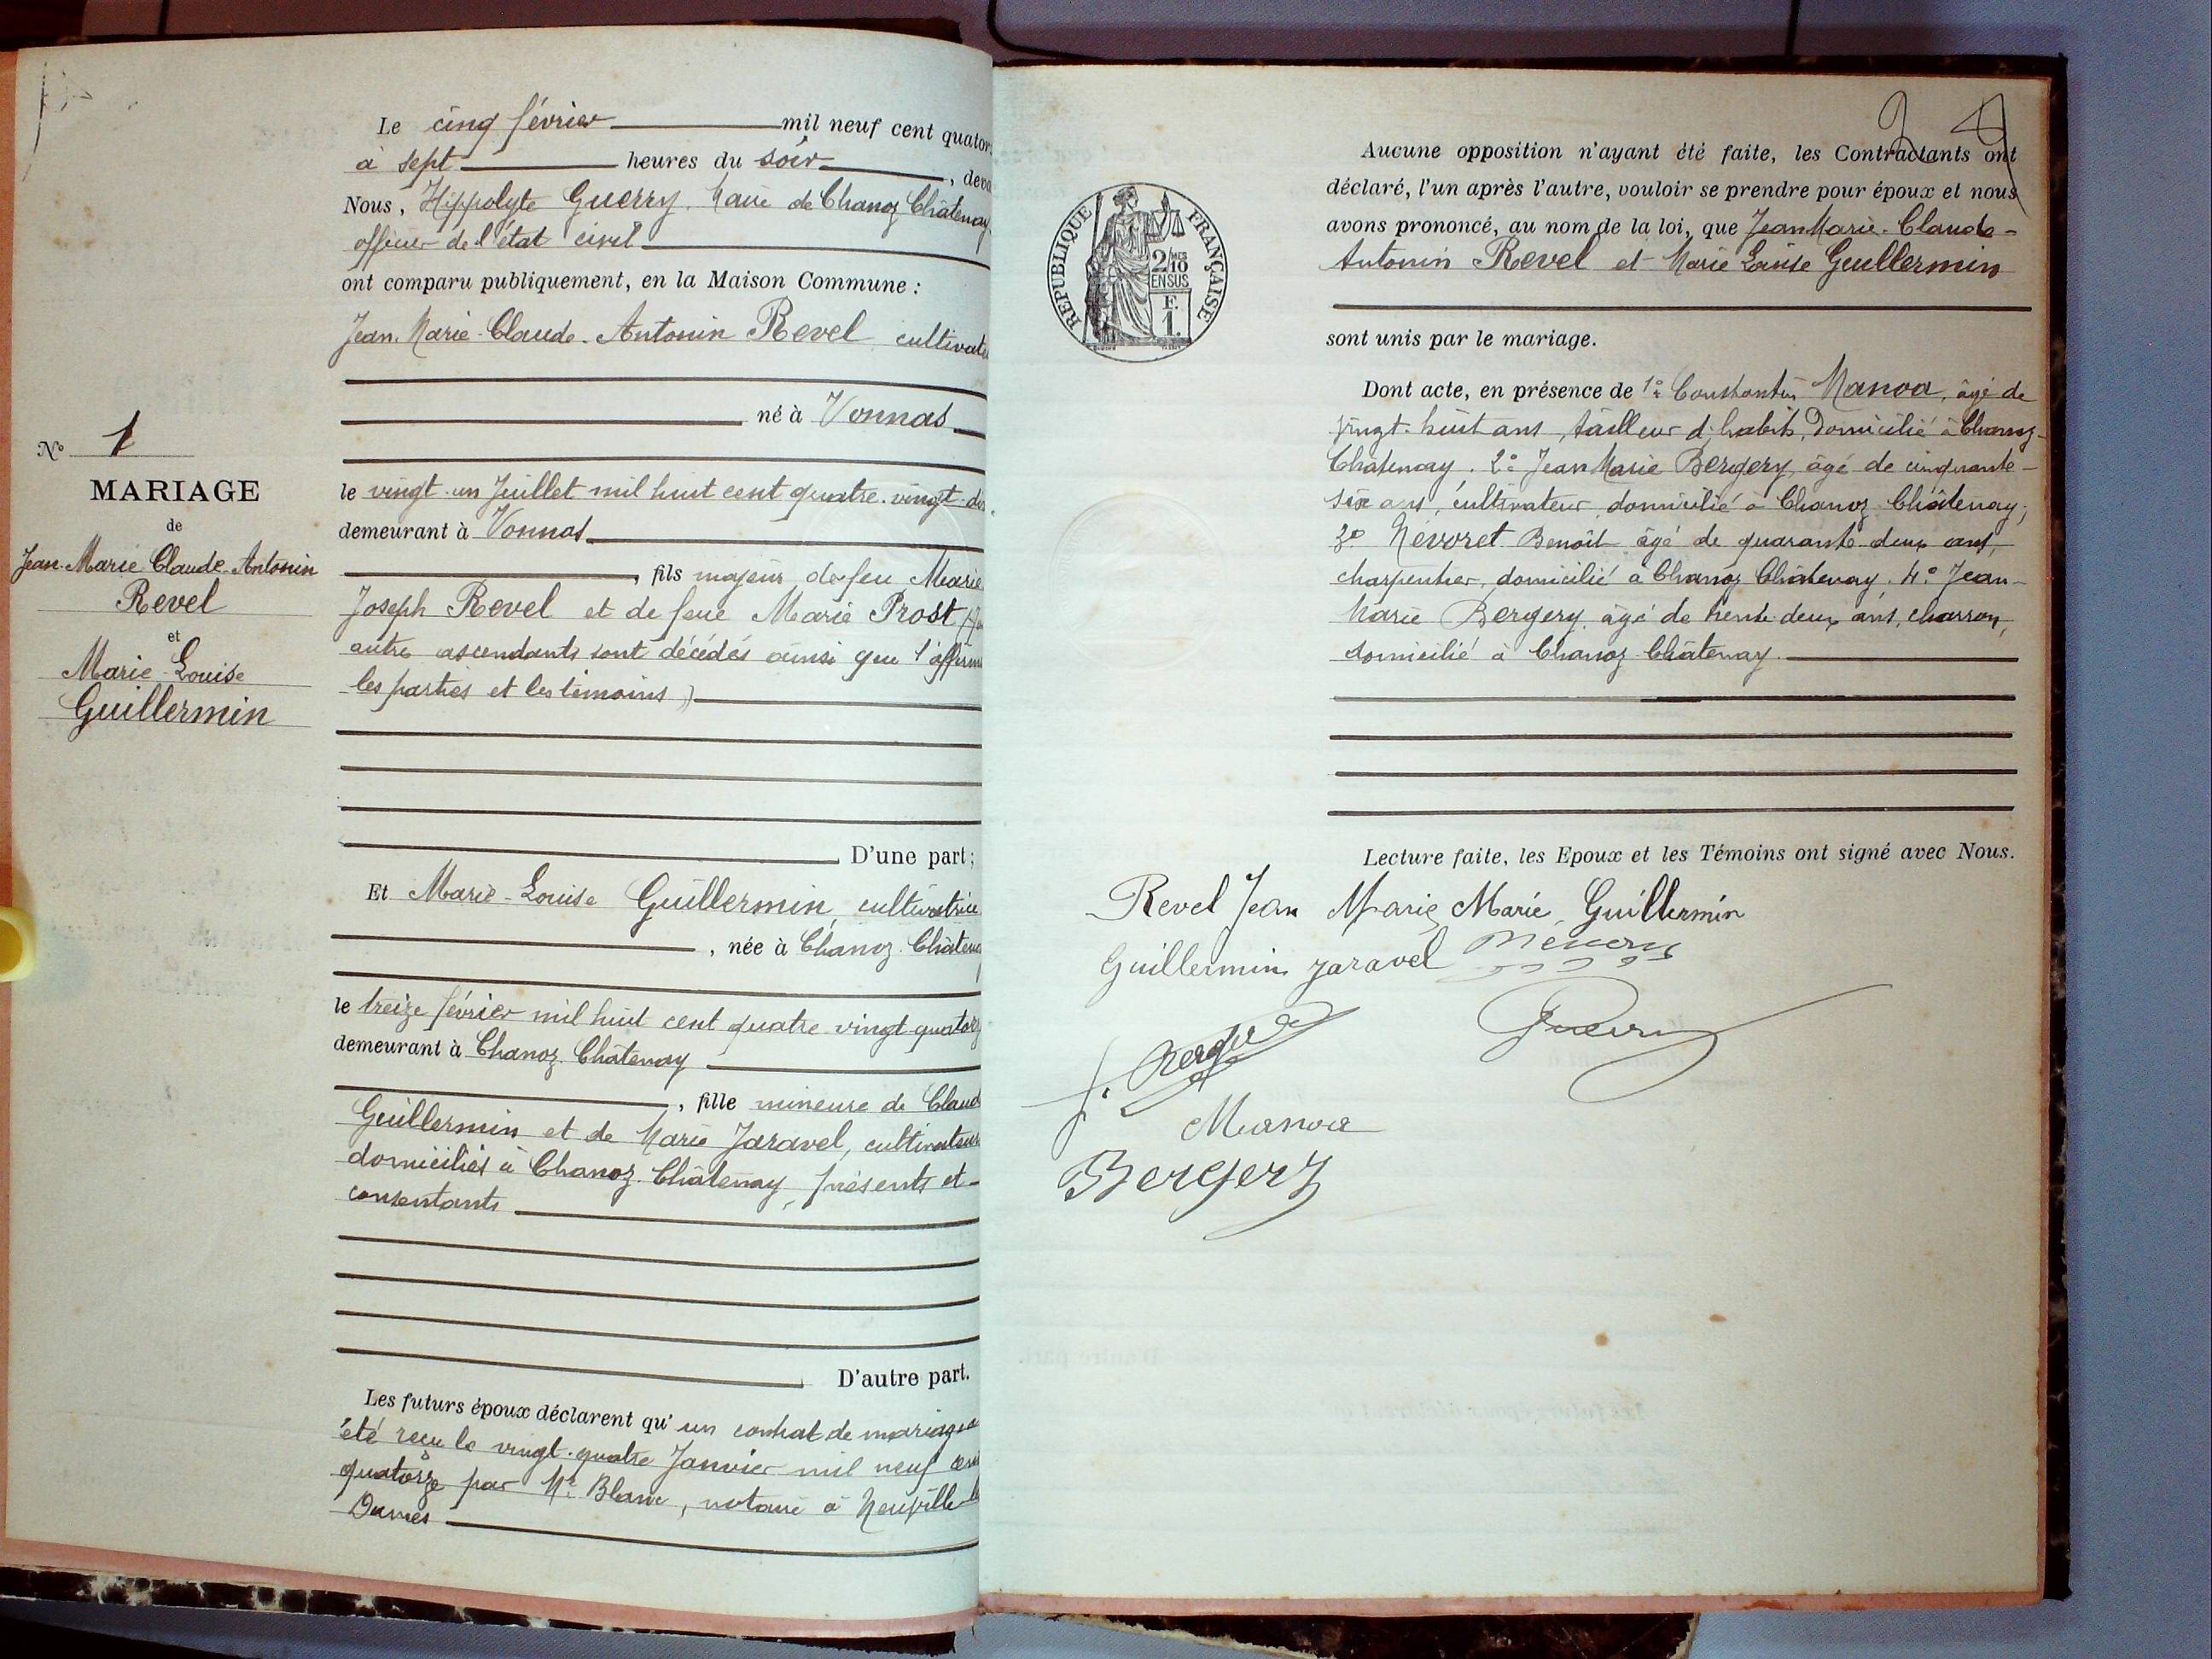 N° 1
MARIAGE
de
Jean-Marie Claude Antonin
Revel
et
Marie-Louise
Guillermin
Le cinq février mil neuf cent quator
à sept heures du soir, deva
Nous, Hippolyte Guerry, Maire de Chanoz Châtenay
officier de l'état civil
ont comparu publiquement, en la Maison Commune :
Jean-Marie-Claude-Antonin Revel cultivate
né à Vonnas
le vingt-un Juillet mil huit cent quatre-vingt-di
demeurant à Vonnas
, fils majeur de feu Marie
Joseph Revel et de feue Marie Prost
autre ascendants sont décédés ainsi que l'affirm
les parties et les témoins)
D'une part ;
Et Marie-Louise Guillermin, cultivatrice
, née à Chanoz-Châtena
le treize février mil huit cent quatre-vingt-quatorz
demeurant à Chanoz-Châtenay
, fille mineure de Claud
Guillermin et de Marie Jaravel, cultivateurs
domiciliés à Chanoz-Châtenay, présents et
consentants
D'autre part.
Les futurs époux déclarent qu'un contrat de mariage a
été reçu le vingt-quatre Janvier mil neuf cent
quatorze par Me Blanc, notaire à Neuville-le
Dames
REPUBLIQUE FRANÇAISE
2 MES
10
EN SUS
F.
1.
Aucune opposition n'ayant été faite, les Contractants ont
déclaré, l'un après l'autre, vouloir se prendre pour époux et nous
avons prononcé, au nom de la loi, que Jean Marie-Claude-
Antonin Revel et Marie Louise Guillermin
sont unis par le mariage.
Dont acte, en présence de 1° Constantin Manoa, âgé de
vingt-huit ans, tailleur d'habits, domicilié à Chanoz-
Châtenay. 2° Jean Marie Bergery, âgé de cinquante-
six ans, cultivateur, domicilié à Chanoz Châtenay;
3° Névoret Benoît âgé de quarante-deux ans,
charpentier, domicilié à Chanoz Châtenay. 4° Jean-
Marie Bergery, âgé de trente-deux ans, charron,
domicilié à Chanoz-Châtenay.
Lecture faite, les Epoux et les Témoins ont signé avec Nous.
Revel Jean Marie Marie Guillermin
Guillermin Jaravel
Guerry
Manoa
Bergery